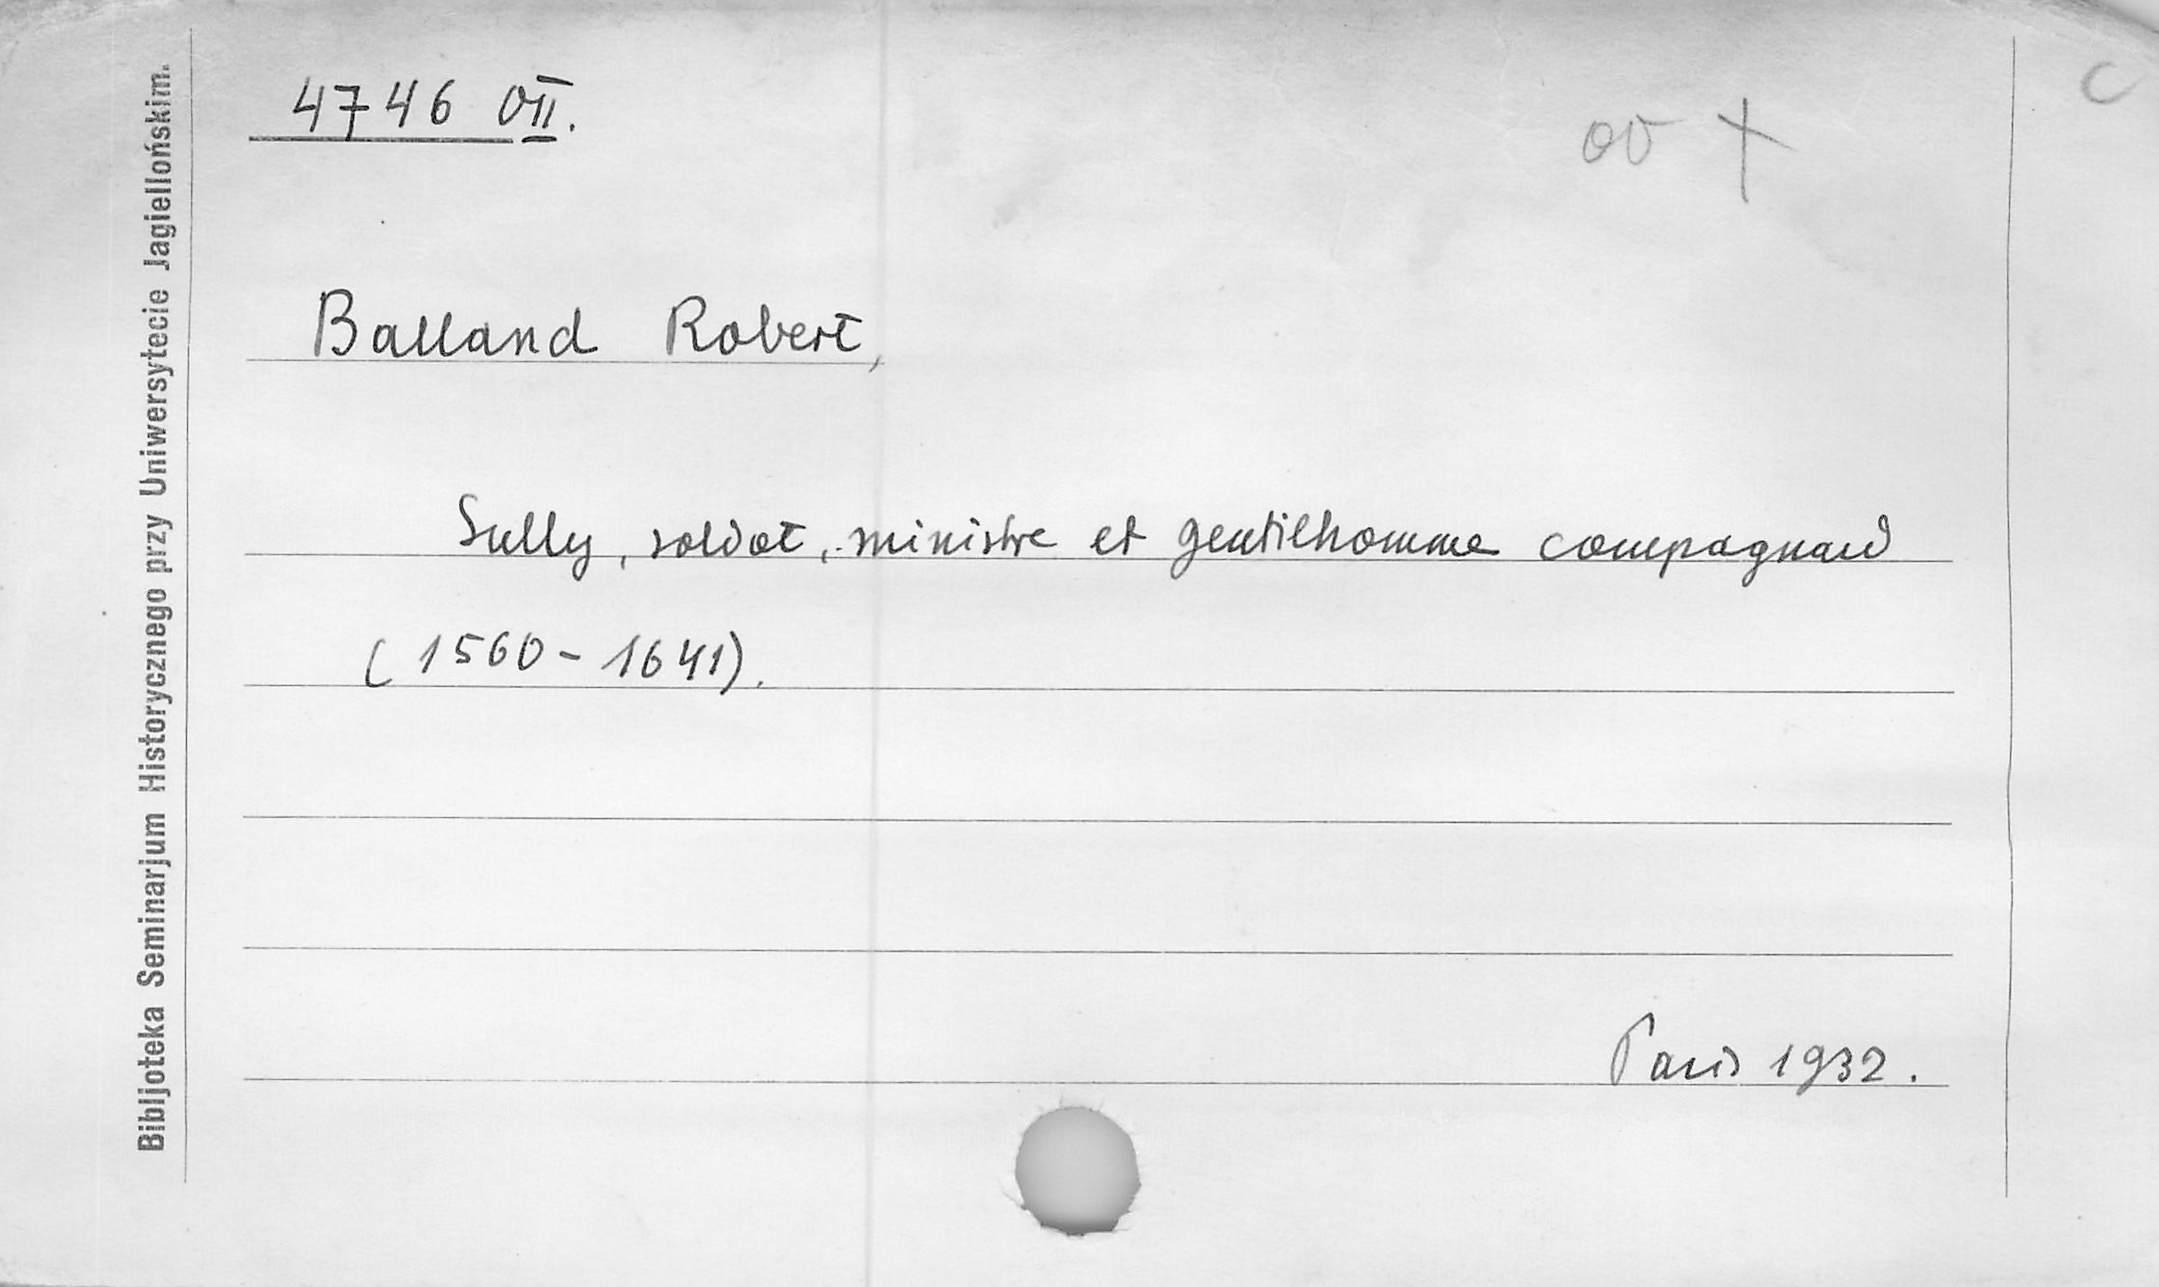 4746 OII.
OO +
C
Balland Robert,
Sully, soldat, ministre et gentilhomme campagnard
(1560-1641).
Paris 1932.
Bibljoteka Seminarjum Historycznego przy Uniwersytecie Jagiellońskim.